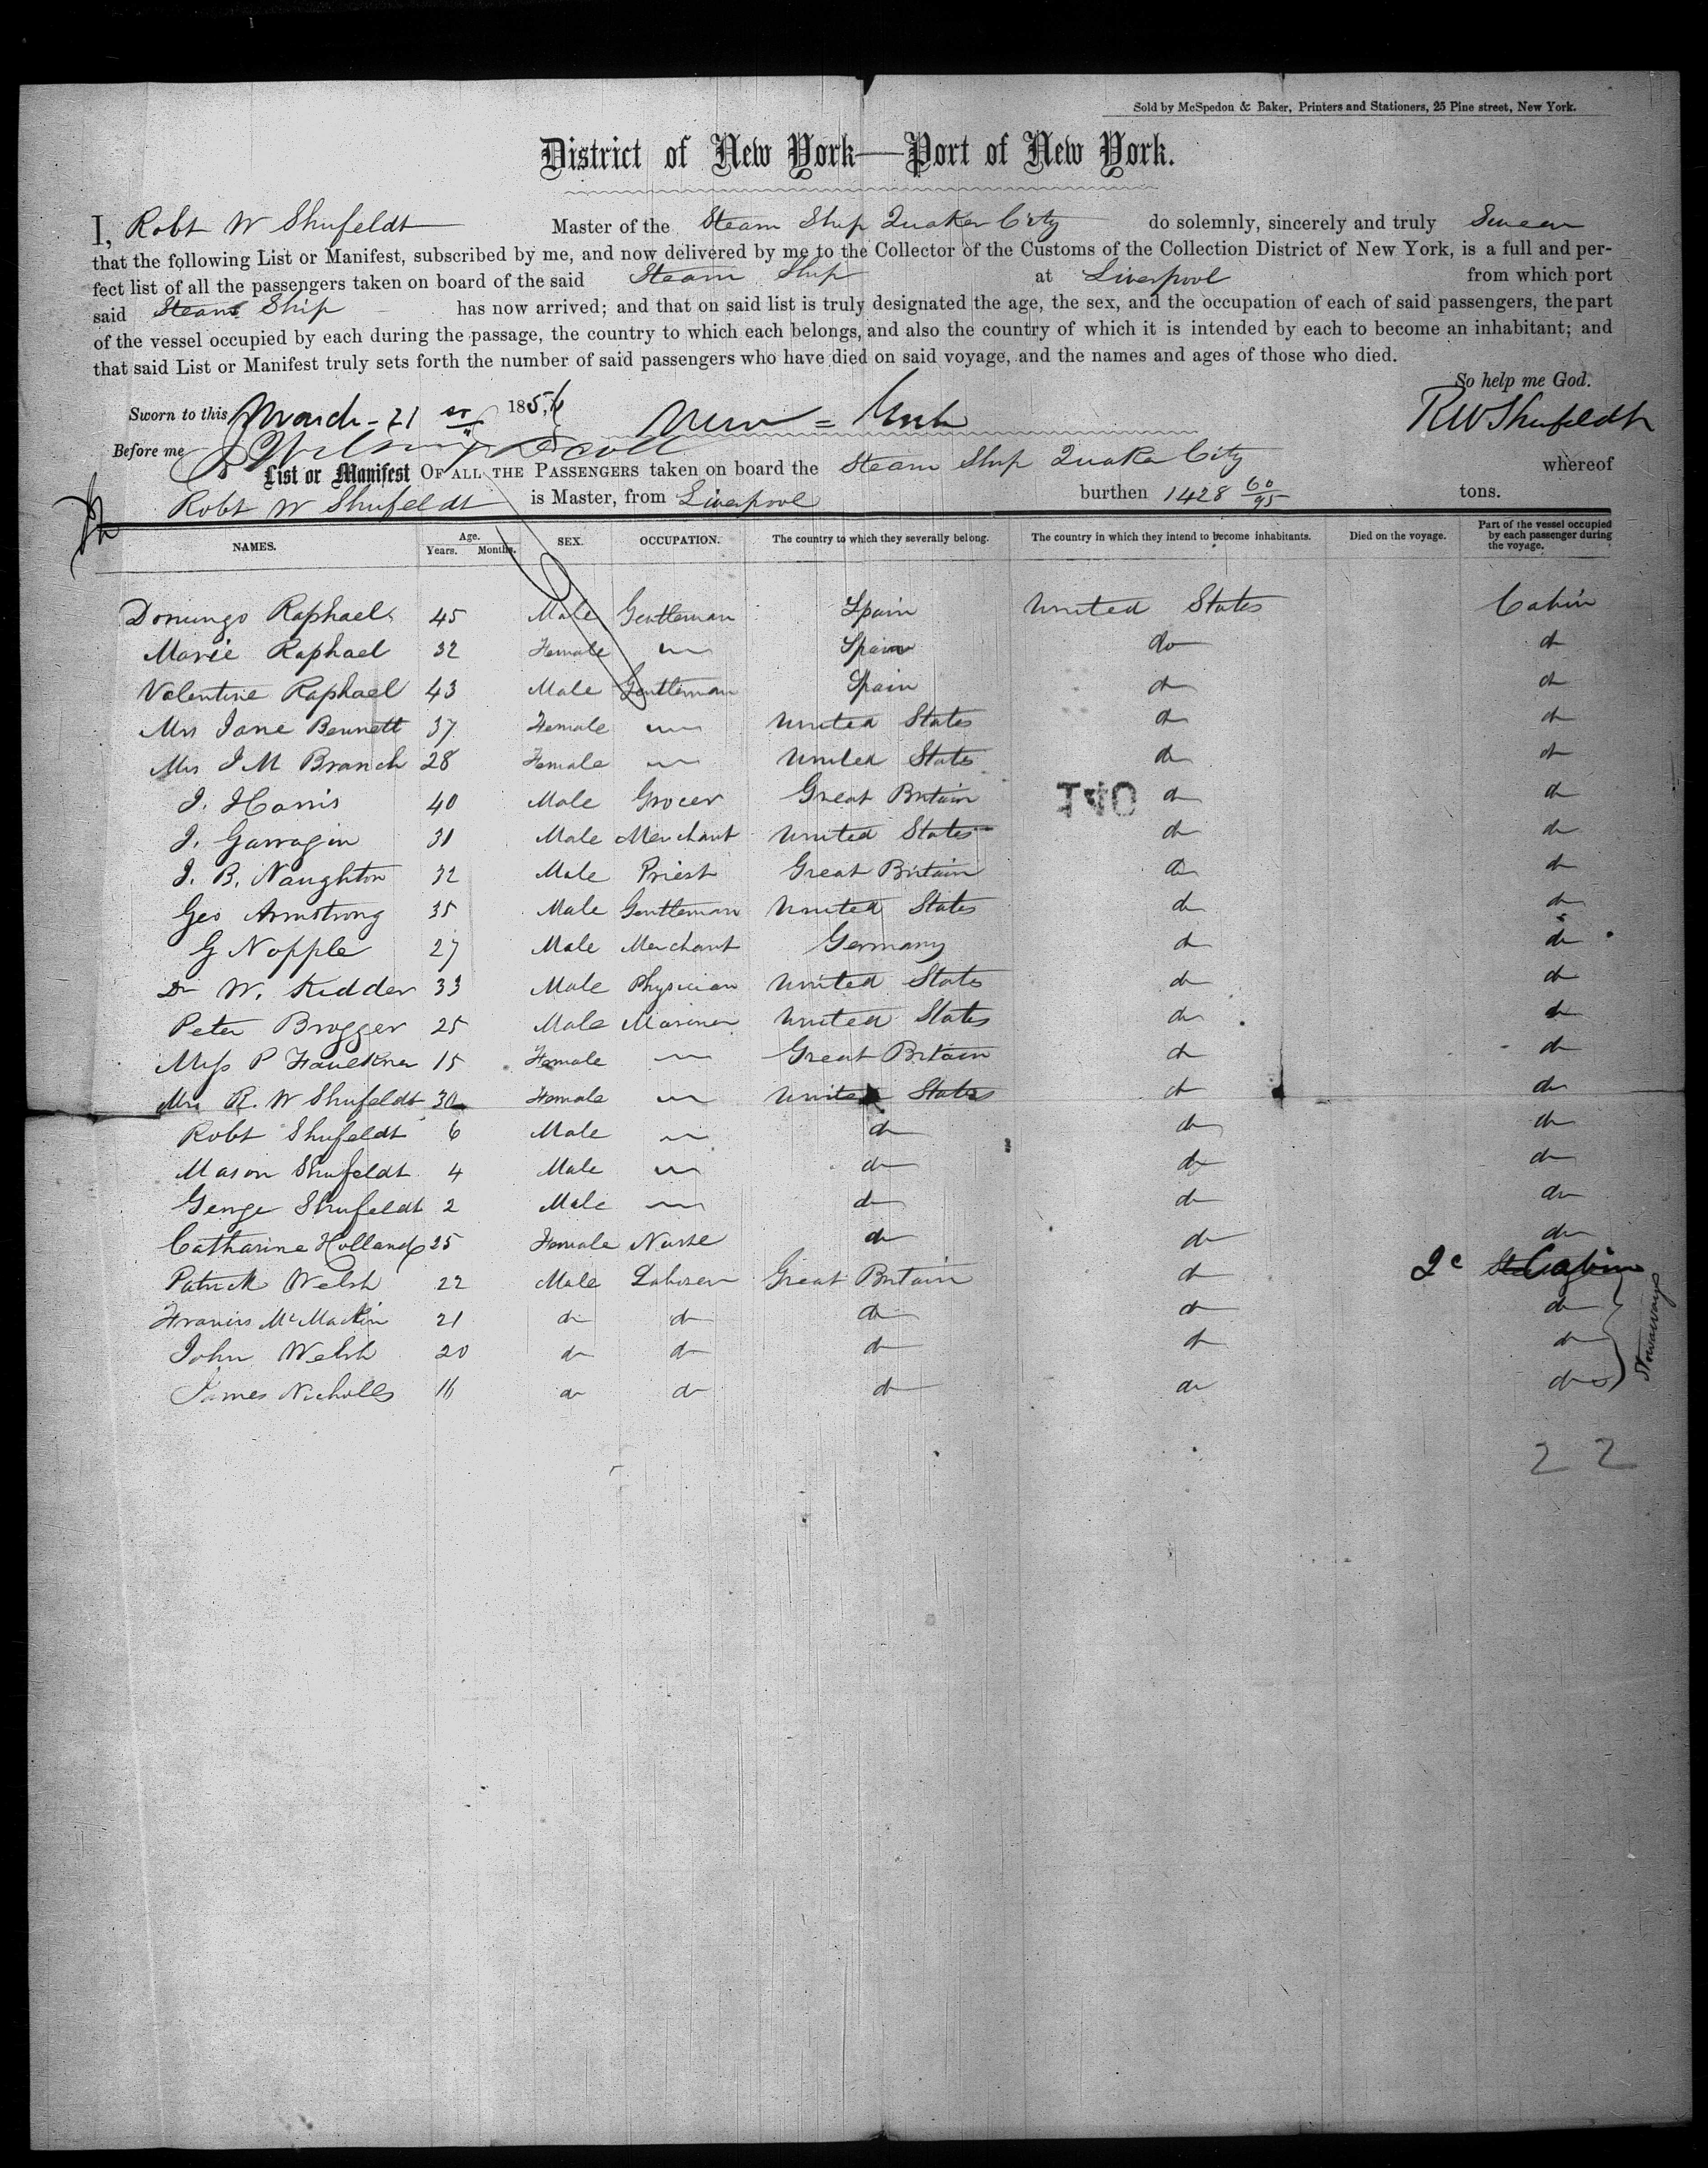 Sold by McSpedon & Baker, Printers and Stationers, 25 Pine street, New York.
District of New York—Port of New York.
I, Robt W Shufeldt Master of the Steam Ship Quaker City do solemnly, sincerely and truly Swear
that the following List or Manifest, subscribed by me, and now delivered by me to the Collector of the Customs of the Collection District of New York, is a full and per-
fect list of all the passengers taken on board of the said Steam Ship at Liverpool from which port
said Steam Ship has now arrived; and that on said list is truly designated the age, the sex, and the occupation of each of said passengers, the part
of the vessel occupied by each during the passage, the country to which each belongs, and also the country of which it is intended by each to become an inhabitant; and
that said List or Manifest truly sets forth the number of said passengers who have died on said voyage, and the names and ages of those who died.
So help me God.
Sworn to this March - 21 st 1856 New = York RW Shufeldt
Before me
List or Manifest OF ALL THE PASSENGERS taken on board the Steam Ship Quaker City whereof
Robt W Shufeldt is Master, from Liverpool burthen 1428 60/95 tons.
NAMES. Age. Years. Months. SEX. OCCUPATION. The country to which they severally belong. The country in which they intend to become inhabitants. Died on the voyage. Part of the vessel occupied by each passenger during the voyage.
Domingo Raphael 45 Male Gentleman Spain United States Cabin
Marie Raphael 32 Female — Spain do do
Valentine Raphael 43 Male Gentleman Spain do do
Mrs Jane Bennett 37 Female — United States do do
Mrs J M Branch 28 Female — United States do do
J. Harris 40 Male Grocer Great Britain do do
J. Garragin 31 Male Merchant United States do do
J. B. Naughton 32 Male Priest Great Britain do do
Geo Armstrong 35 Male Gentleman United States do do
G Nopple 27 Male Merchant Germany do do
Dr W. Kidder 33 Male Physician United States do do
Peter Brogger 25 Male Mariner United States do do
Miss P Faulkner 15 Female — Great Britain do do
Mrs R. W Shufeldt 30 Female — United States do do
Robt Shufeldt 6 Male — do do do
Mason Shufeldt 4 Male — do do do
George Shufeldt 2 Male — do do do
Catharine Holland 25 Female Nurse do do do
Patrick Welsh 22 Male Laborer Great Britain do 2c Cabin
Francis McMackin 21 do do do do do
John Welsh 20 do do do do do
James Nicholls 16 do do do do do
Stowaways
22